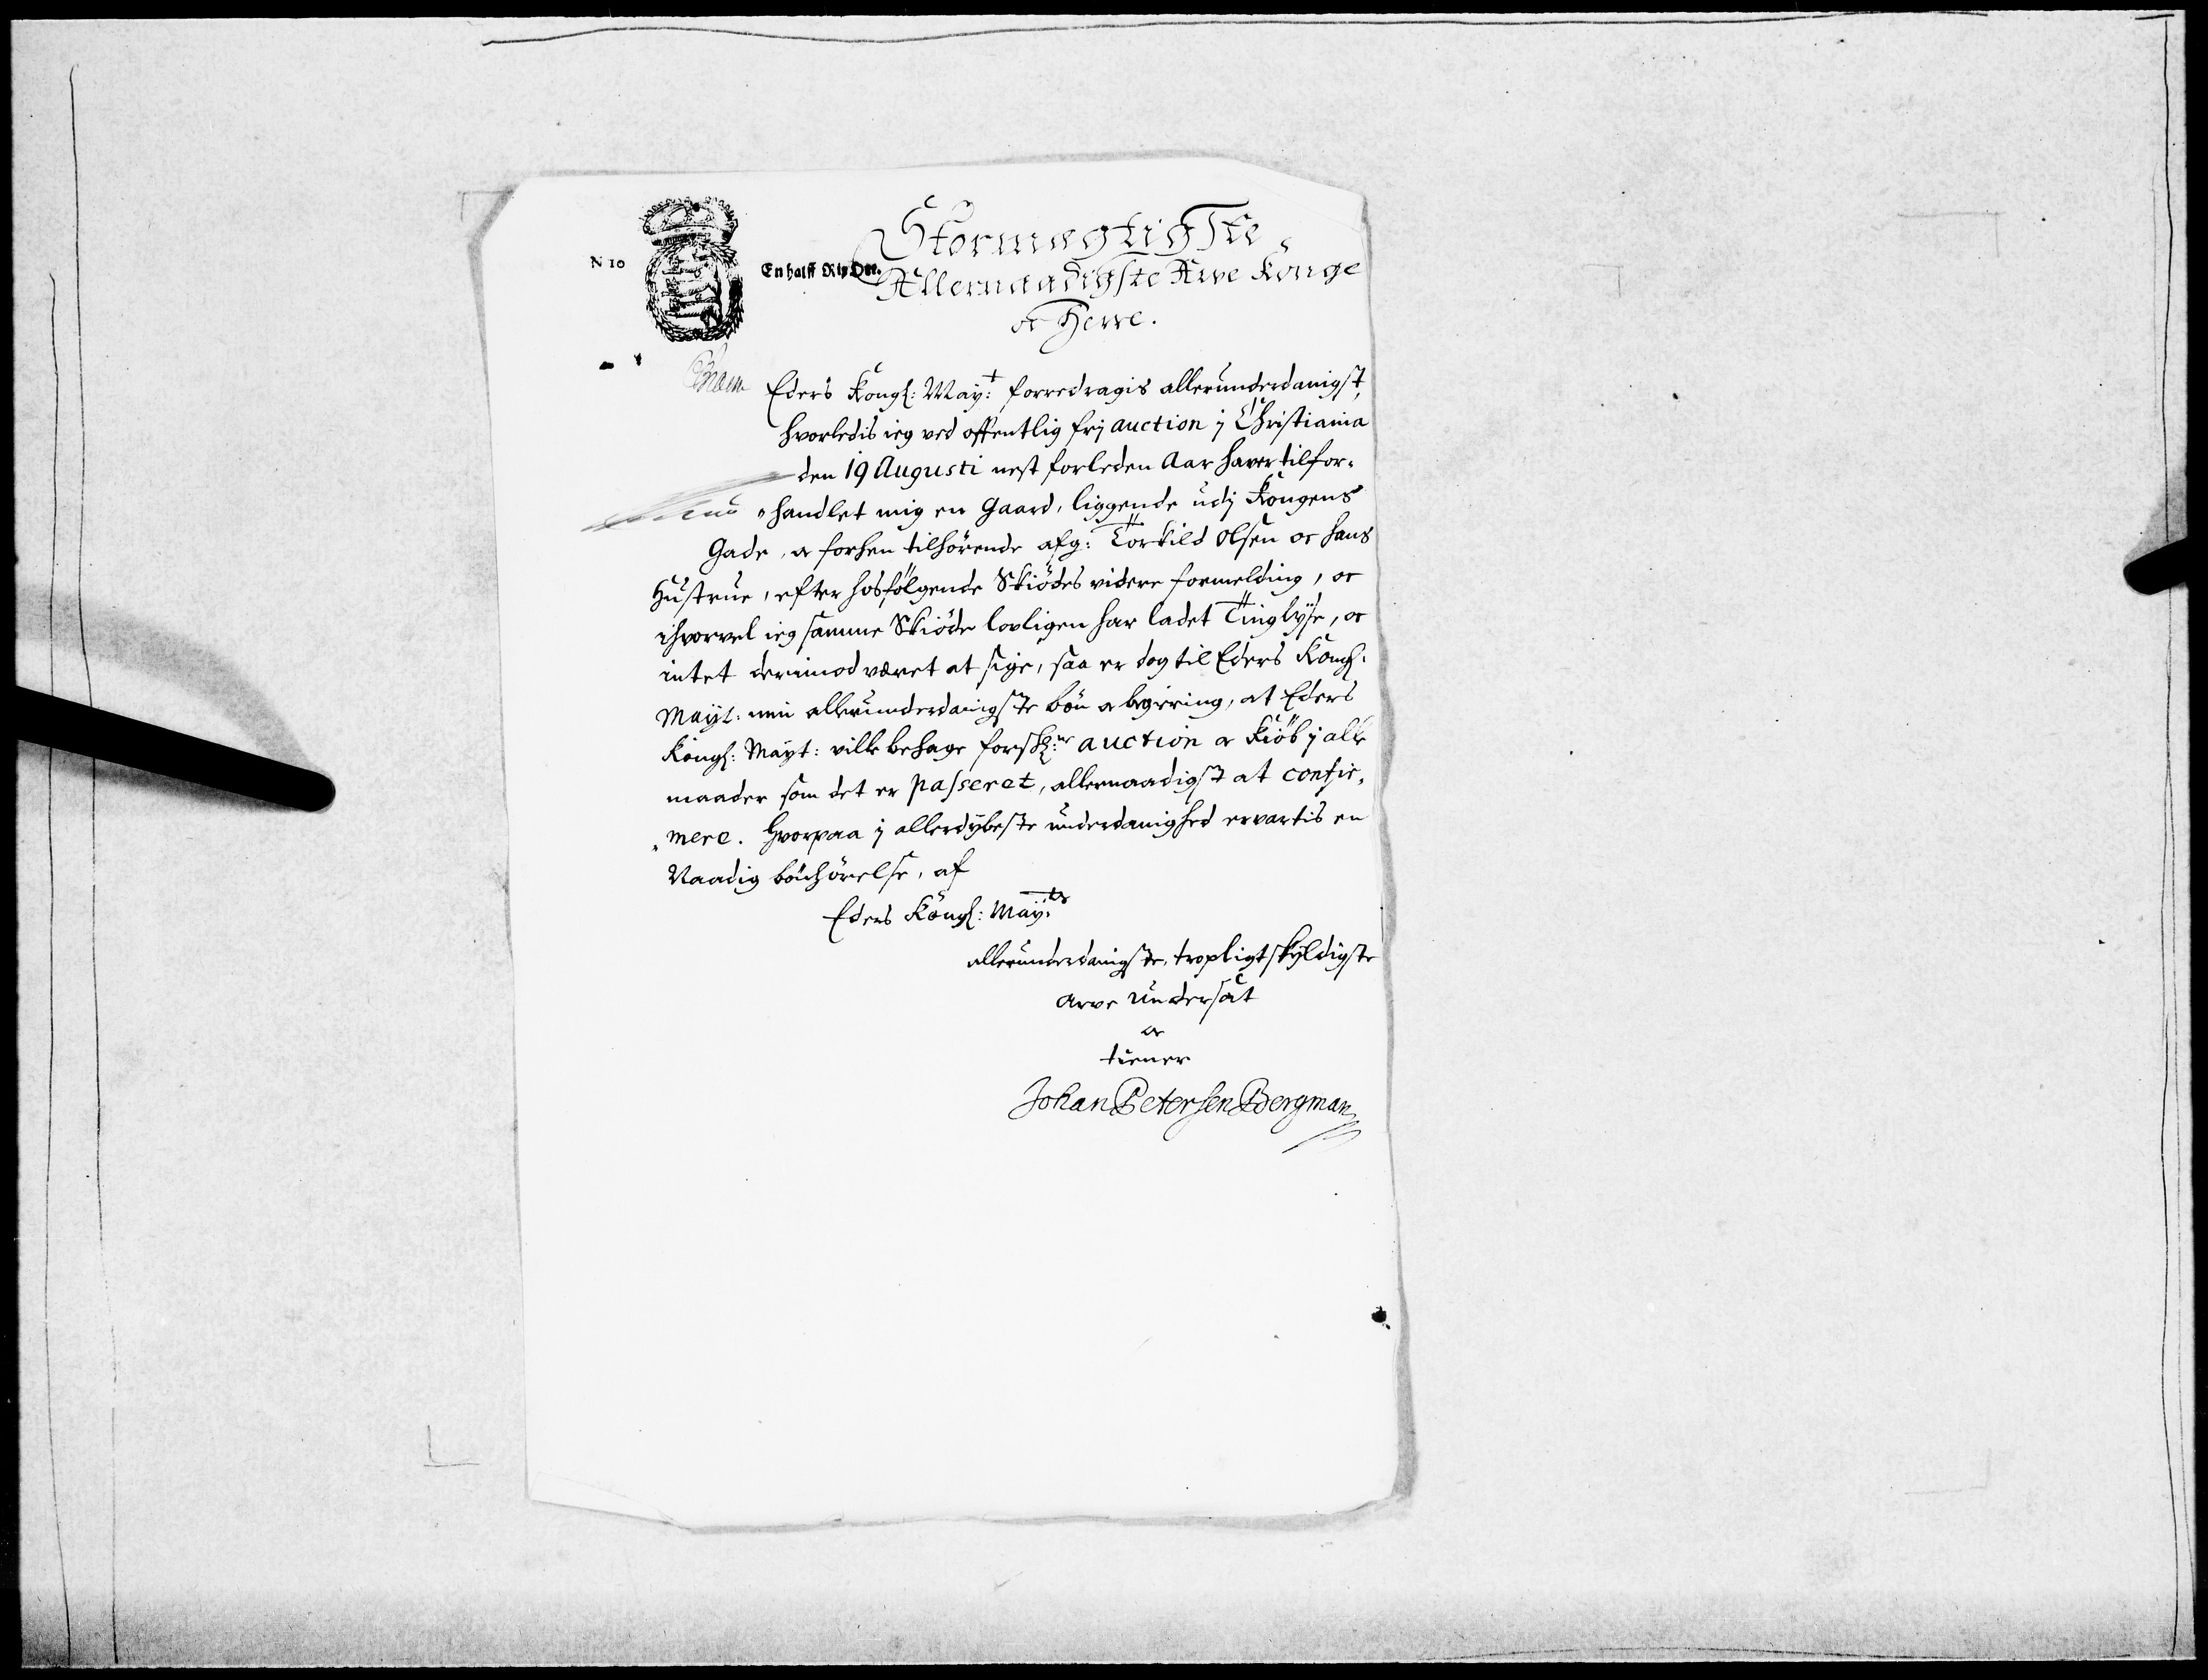 Stormegtigste
N 10
En halff Rix Ort.
Allernaadigste Arve Konge
oc Herre.
Eders Kongl: May:t forredragis allerunderdanigst,
hvorledis ieg ved offentlig frj auction j Christiania
den 19 Augusti nest forleden Aar haver tilfor-
handlet mig en Gaard, liggende udj Kongens
Gade, oc forhen tilhörende afg: Torkild Olsen oc hans
Hustrue, efter hosfölgende Skiödes videre formelding, oc
ihvorvel ieg samme Skiöde lovligen har ladet Tinglyse, oc
intet derimod været at sige, saa er dog til Eders Kongl:
Mayt: min allerunderdanigste bön oc begiering, at Eders
Kongl: Mayt: ville behage forskl:ne auction oc Kiöb j alle
maader som det er passeret, allernaadigst at confir-
mere. Hvorpaa j allerdybeste underdanighed ervartis en
Naadig bönhörelse, af
Eders Kongl: May:ts
allerunderdanigste, tropligtskyldigste
Arve Undersåt
oc
tiener
Johan Petersen Bergman